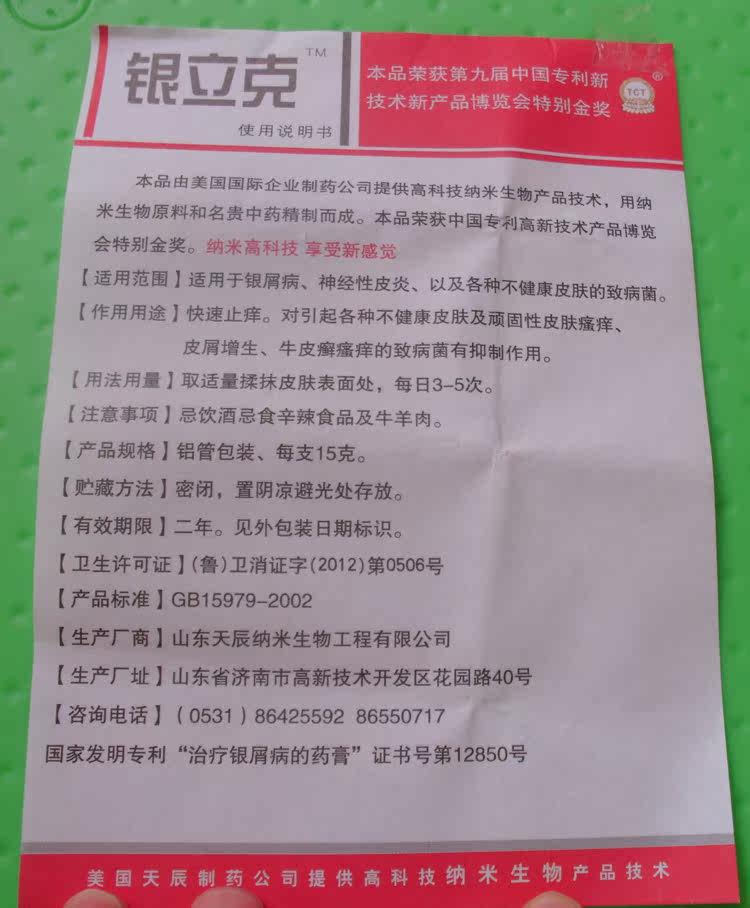 银立克TM
使用说明书
本品荣获第九届中国专利新
技术新产品博览会特别金奖
TCT
®
本品由美国国际企业制药公司提供高科技纳米生物产品技术，用纳
米生物原料和名贵中药精制而成。本品荣获中国专利高新技术产品博览
会特别金奖。纳米高科技 享受新感觉
【适用范围】适用于银屑病、神经性皮炎、以及各种不健康皮肤的致病菌。
【作用用途】快速止痒。对引起各种不健康皮肤及顽固性皮肤瘙痒、
皮屑增生、牛皮癣瘙痒的致病菌有抑制作用。
【用法用量】取适量揉抹皮肤表面处，每日3-5次。
【注意事项】忌饮酒忌食辛辣食品及牛羊肉。
【产品规格】铝管包装、每支15克。
【贮藏方法】密闭，置阴凉避光处存放。
【有效期限】二年。见外包装日期标识。
【卫生许可证】(鲁)卫消证字(2012)第0506号
【产品标准】GB15979-2002
【生产厂商】山东天辰纳米生物工程有限公司
【生产厂址】山东省济南市高新技术开发区花园路40号
【咨询电话】（0531）86425592 86550717
国家发明专利“治疗银屑病的药膏”证书号第12850号
美国天辰制药公司提供高科技纳米生物产品技术